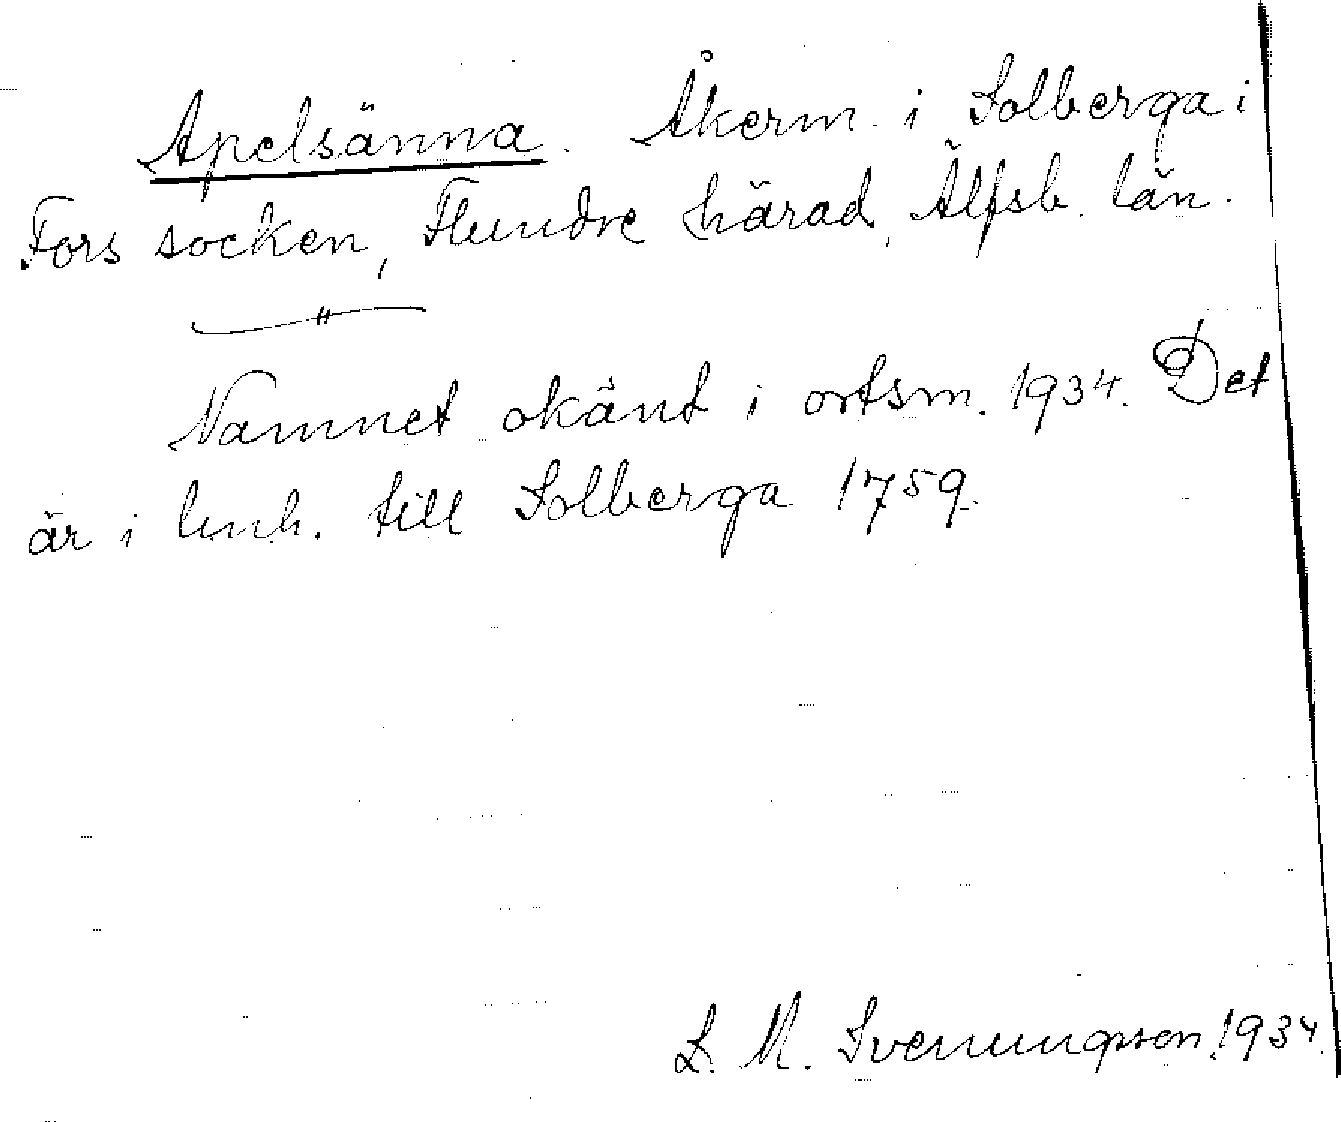 Apelsänna. Åkerm. i Solberga i
Fors socken, Flundre härad, Älfsb. län.
Namnet okänt i ortsm. 1934. Det
är i lmh. till Solberga 1759.
L. M. Svenungsson 1934.